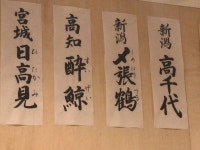 新潟 高千代
新潟 〆張鶴
高知 酔鯨
宮城 日高見